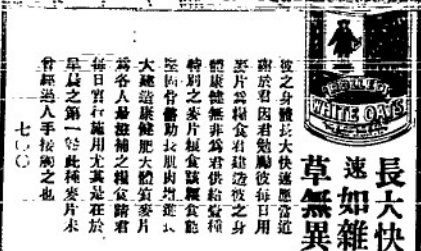 WHITE OATS
長大快
速如雜
草無異
彼之身體長大快速應當道
謝於君因君勉勵彼每日用
麥片為糧食君建造彼之身
體康健無非為君供給此種
特別之麥片糧食該糧食能
堅固骨骼助長肌肉增進長
大建造康健肥大體質麥片
為各人最滋補之糧食請君
每日實行施用尤其是在於
早晨之第一餐此種麥片未
曾經過人手接觸之也
七〇〇